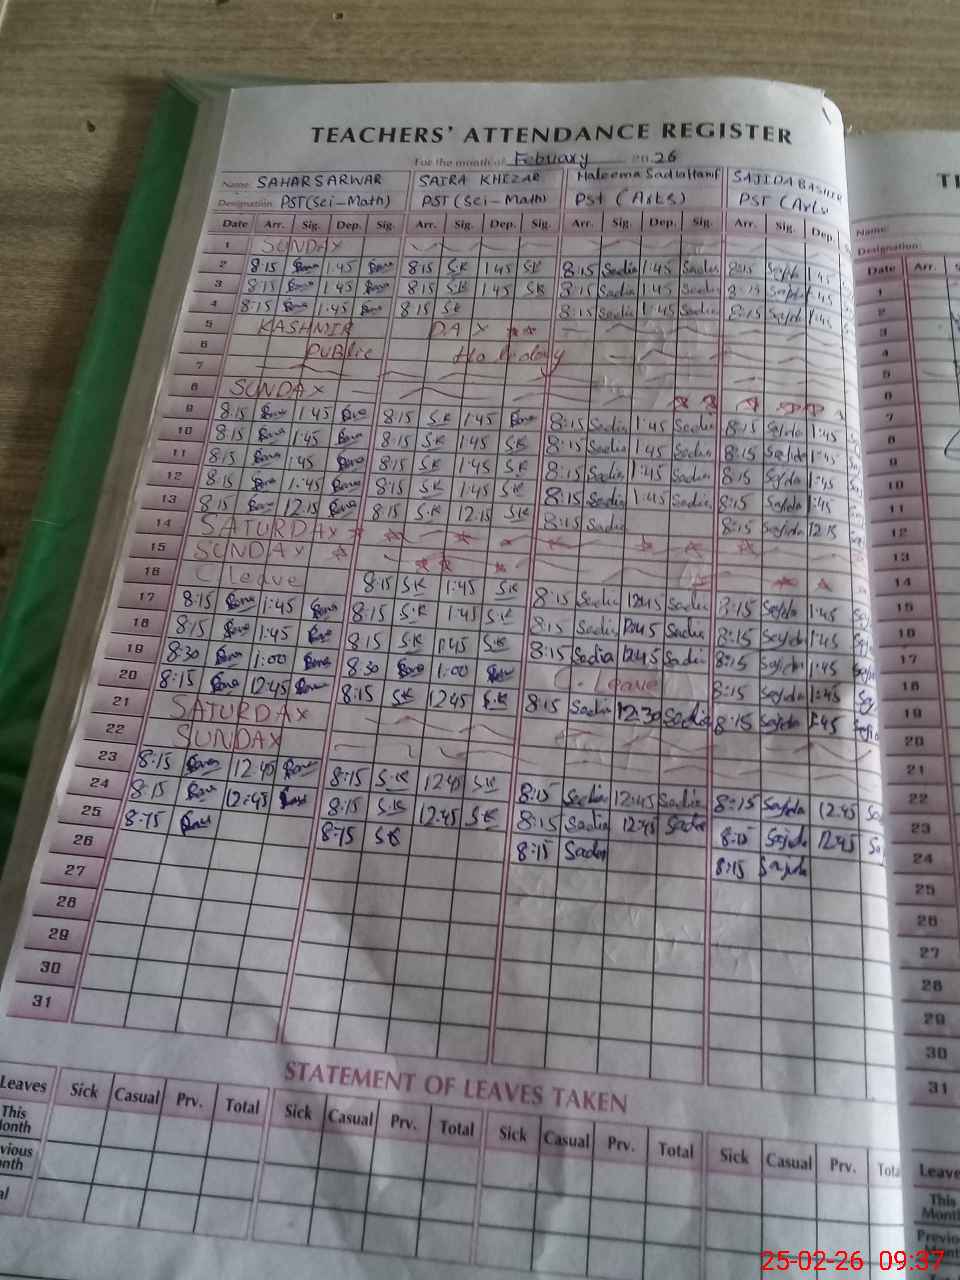 TEACHERS' ATTENDANCE REGISTER
For the month of February 26
Name SAHAR SARWAR SAIRA KHIZAR Haleema Sadia Hanif SAJIDA BASHIR
Designation PST (Sci-Math) PST (Sci-Math) Pst (Arts) PST (Arts
Date Arr. Sig. Dep. Sig. Arr. Sig. Dep. Sig. Arr. Sig. Dep. Sig. Arr. Sig. Dep.
1 SUNDAY
2 8:15 1:45 8:15 S.K 1:45 SK 8:15 Sadia 1:45 Sadia 8:15 Sajida 1:45
3 8:15 1:45 8:15 S.K 1:45 SK 8:15 Sadia 1:45 Sadia 8:15 Sajida 1:45
4 8:15 1:45 8:15 SK 8:15 Sadia 1:45 Sadia 8:15 Sajida 1:45
5 KASHMIR DAY
6 PUBLIC Holiday
7
8 SUNDAY
9 8:15 1:45 8:15 S.K 1:45 8:15 Sadia 1:45 Sadia 8:15 Sajida 1:45
10 8:15 1:45 8:15 SK 1:45 SK 8:15 Sadia 1:45 Sadia 8:15 Sajida 1:45
11 8:15 1:45 8:15 SK 1:45 SK 8:15 Sadia 1:45 Sadia 8:15 Sajida 1:45
12 8:15 1:45 8:15 SK 1:45 SK 8:15 Sadia 1:45 Sadia 8:15 Sajida 1:45
13 8:15 12:15 8:15 S.K 12:15 SK 8:15 Sadia 8:15 Sajida 12:15
14 SATURDAY
15 SUNDAY
16 C leave 8:15 SK 1:45 SK 8:15 Sadia 12:45 Sadia 8:15 Sajida 1:45
17 8:15 1:45 8:15 S.K 1:45 S.K 8:15 Sadia 12:45 Sadia 8:15 Sajida 1:45
18 8:15 1:45 8:15 S.K 1:45 S.K 8:15 Sadia 12:45 Sadia 8:15 Sajida 1:45
19 8:30 1:00 8:30 1:00 C. Leave 8:15 Sajida 1:45
20 8:15 12:45 8:15 SK 12:45 S.K 8:15 Sadia 12:30 Sadia 8:15 Sajida 1:45
21 SATURDAY
22 SUNDAY
23 8:15 12:45 8:15 S.K 12:45 SK 8:15 Sadia 12:45 Sadia 8:15 Sajida 12:45
24 8:15 12:45 8:15 SK 12:45 SK 8:15 Sadia 12:45 Sadia 8:15 Sajida 12:45
25 8:15 8:15 SK 8:15 Sadia 8:15 Sajida
26
27
28
29
30
31
STATEMENT OF LEAVES TAKEN
Leaves Sick Casual Prv. Total Sick Casual Prv. Total Sick Casual Prv. Total Sick Casual Prv.
This
Name
Designation
Date Arr.
1
2
3
4
5
6
7
8
9
10
11
12
13
14
15
16
17
18
19
20
21
22
23
24
25
26
27
28
29
30
31
Leave
This
25-02-26 09:37